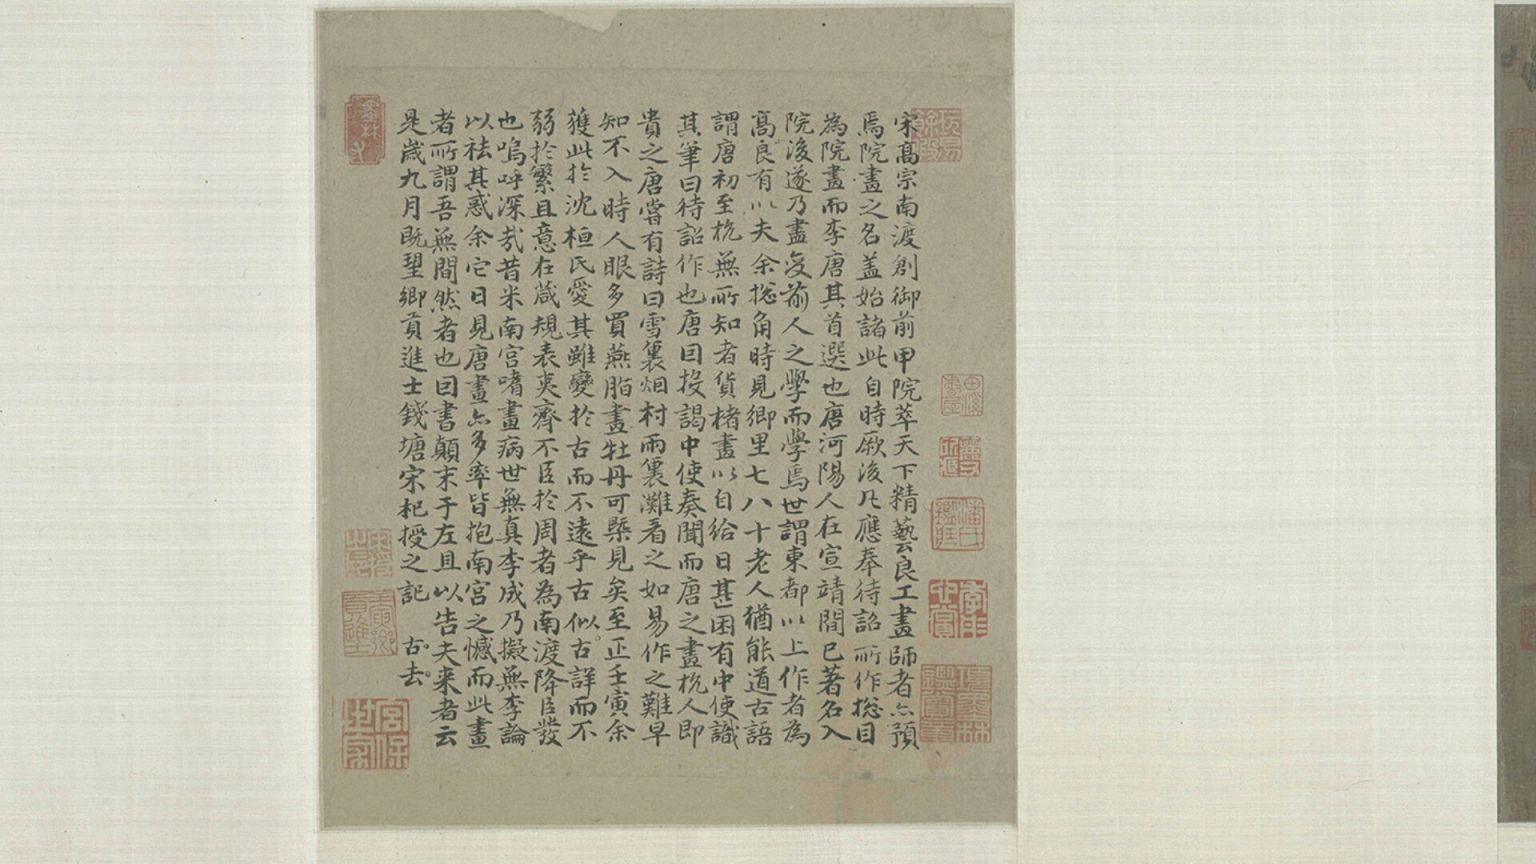 宋高宗南渡創御前甲院萃天下精藝良工畫師者亦預
焉院畫之名盖始諸此自時厥後凡應奉待詔所作揔目
為院畫而李唐其首選也唐河陽人在宣靖間已著名入
院後遂乃盡變前人之學而學焉世謂東都以上作者為
高良有以夫余揔角時見鄉里七八十老人猶能道古語
謂唐初至杭無所知者貨楮畫以自給日甚困有中使識
其筆曰待詔作也唐因投謁中使奏聞而唐之畫杭人即
貴之唐嘗有詩曰雪裏烟村雨裏灘看之如易作之難早
知不入時人眼多買燕脂畫牡丹可槩見矣至正壬寅余
獲此於沈桓氏愛其雖變於古而不遠乎古似古詳而不
弱於繁且意在箴規表夷齊不臣於周者為南渡降臣發
也嗚呼深哉昔米南宮嗜畫病世無真李成乃擬無李論
以祛其惑余它日見唐畫亦多率皆抱南宮之憾而此畫
者所謂吾無間然者也因書顛末于左且以告夫来者云
是歲九月既望鄉貢進士錢塘宋杞授之記 古去